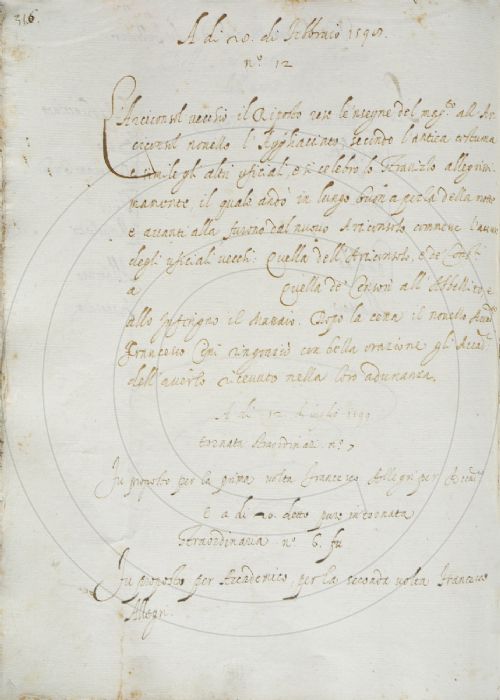 316.
A di 20. di Febbraio 1598.
n.° 12
L'Arciconsol vecchio il Riposto rese le'nsegne del mag.to all Ar
ciconsol novello l' secondo l'antica costuma
e simile gli altri uficial, e si celebrò lo Stravizo allegrissi
mamente, il quale andò in lungo buona pezza della notte
e avanti alla furono dal nuovo Arciconsolo commesse l'accuse
degli uficial vecchi: Quella dell'Arciconsolo, e de Cons.
a Quella de' Censori all'
allo Inferigno il Dopo la cena il novello Accad.
Francesco ringraziò con bella orazione gli Accad.
dell'averlo ritenuto nella loro adunanza.
A di 12. di luglio 1599
tornata straordinar. n.° 7
Fu proposto per la prima volta Francesco Allegri per Accad.
E a di 20. detto pure in tornata
Straordinaria n.° 6. fu
Fu proposto per Accademico, per la seconda volta Francesco
Allegri.